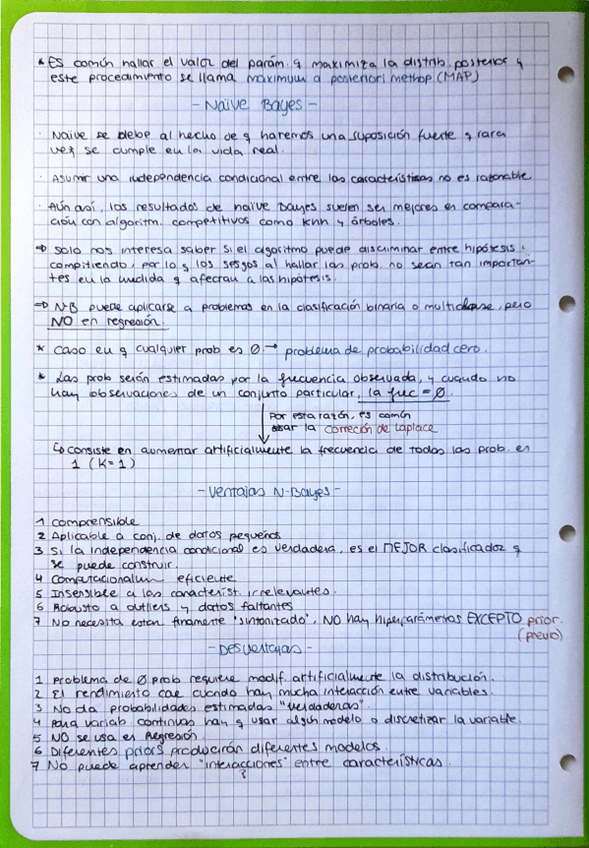 * Es común hallar el valor del parám. q maximiza la distrib. posterior y
este procedimiento se llama maximum a posteriori method (MAP)
- Naïve Bayes -
· Naïve se debe al hecho de q haremos una suposición fuerte q rara
vez se cumple en la vida real.
· Asumir una independencia condicional entre las características no es razonable.
· Aún así, los resultados de naïve bayes suelen ser mejores en compara-
ción con algoritm. competitivos como knn y árboles.
⇒ Solo nos interesa saber si el algoritmo puede discriminar entre hipótesis
compitiendo, por lo q los sesgos al hallar las prob. no sean tan importan-
tes en la medida q afectan a las hipótesis.
⇒ N-B puede aplicarse a problemas en la clasificación binaria o multiclase, pero
NO en regresión.
* Caso en q cualquier prob es 0 → problema de probabilidad cero.
* Las prob serán estimadas por la frecuencia observada, y cuando no
hay observaciones de un conjunto particular, la frec = 0.
Por esta razón, es común
usar la correción de Laplace
↳ consiste en aumentar artificialmente la frecuencia de todas las prob. en
1 (k=1)
- Ventajas N-Bayes -
1 Comprensible
2 Aplicable a conj. de datos pequeños
3 Si la independencia condicional es verdadera, es el MEJOR clasificador q
se puede construir.
4 Computacionalm eficiente
5 Insensible a las caracterist. irrelevantes.
6 Robusto a outliers y datos faltantes
7 No necesita estar finamente "sintonizado", NO hay hiperparámetros EXCEPTO prior.
(previo)
- Desventajas -
1 Problema de 0 prob requiere modif. artificialmente la distribución.
2 El rendimiento cae cuando hay mucha interacción entre variables.
3 No da probabilidades estimadas "verdaderas".
4 Para variab continuas hay q usar algún modelo o discretizar la variable.
5 NO se usa en Regresión.
6 Diferentes priors producirán diferentes modelos.
7 No puede aprender "interacciones" entre características.
?